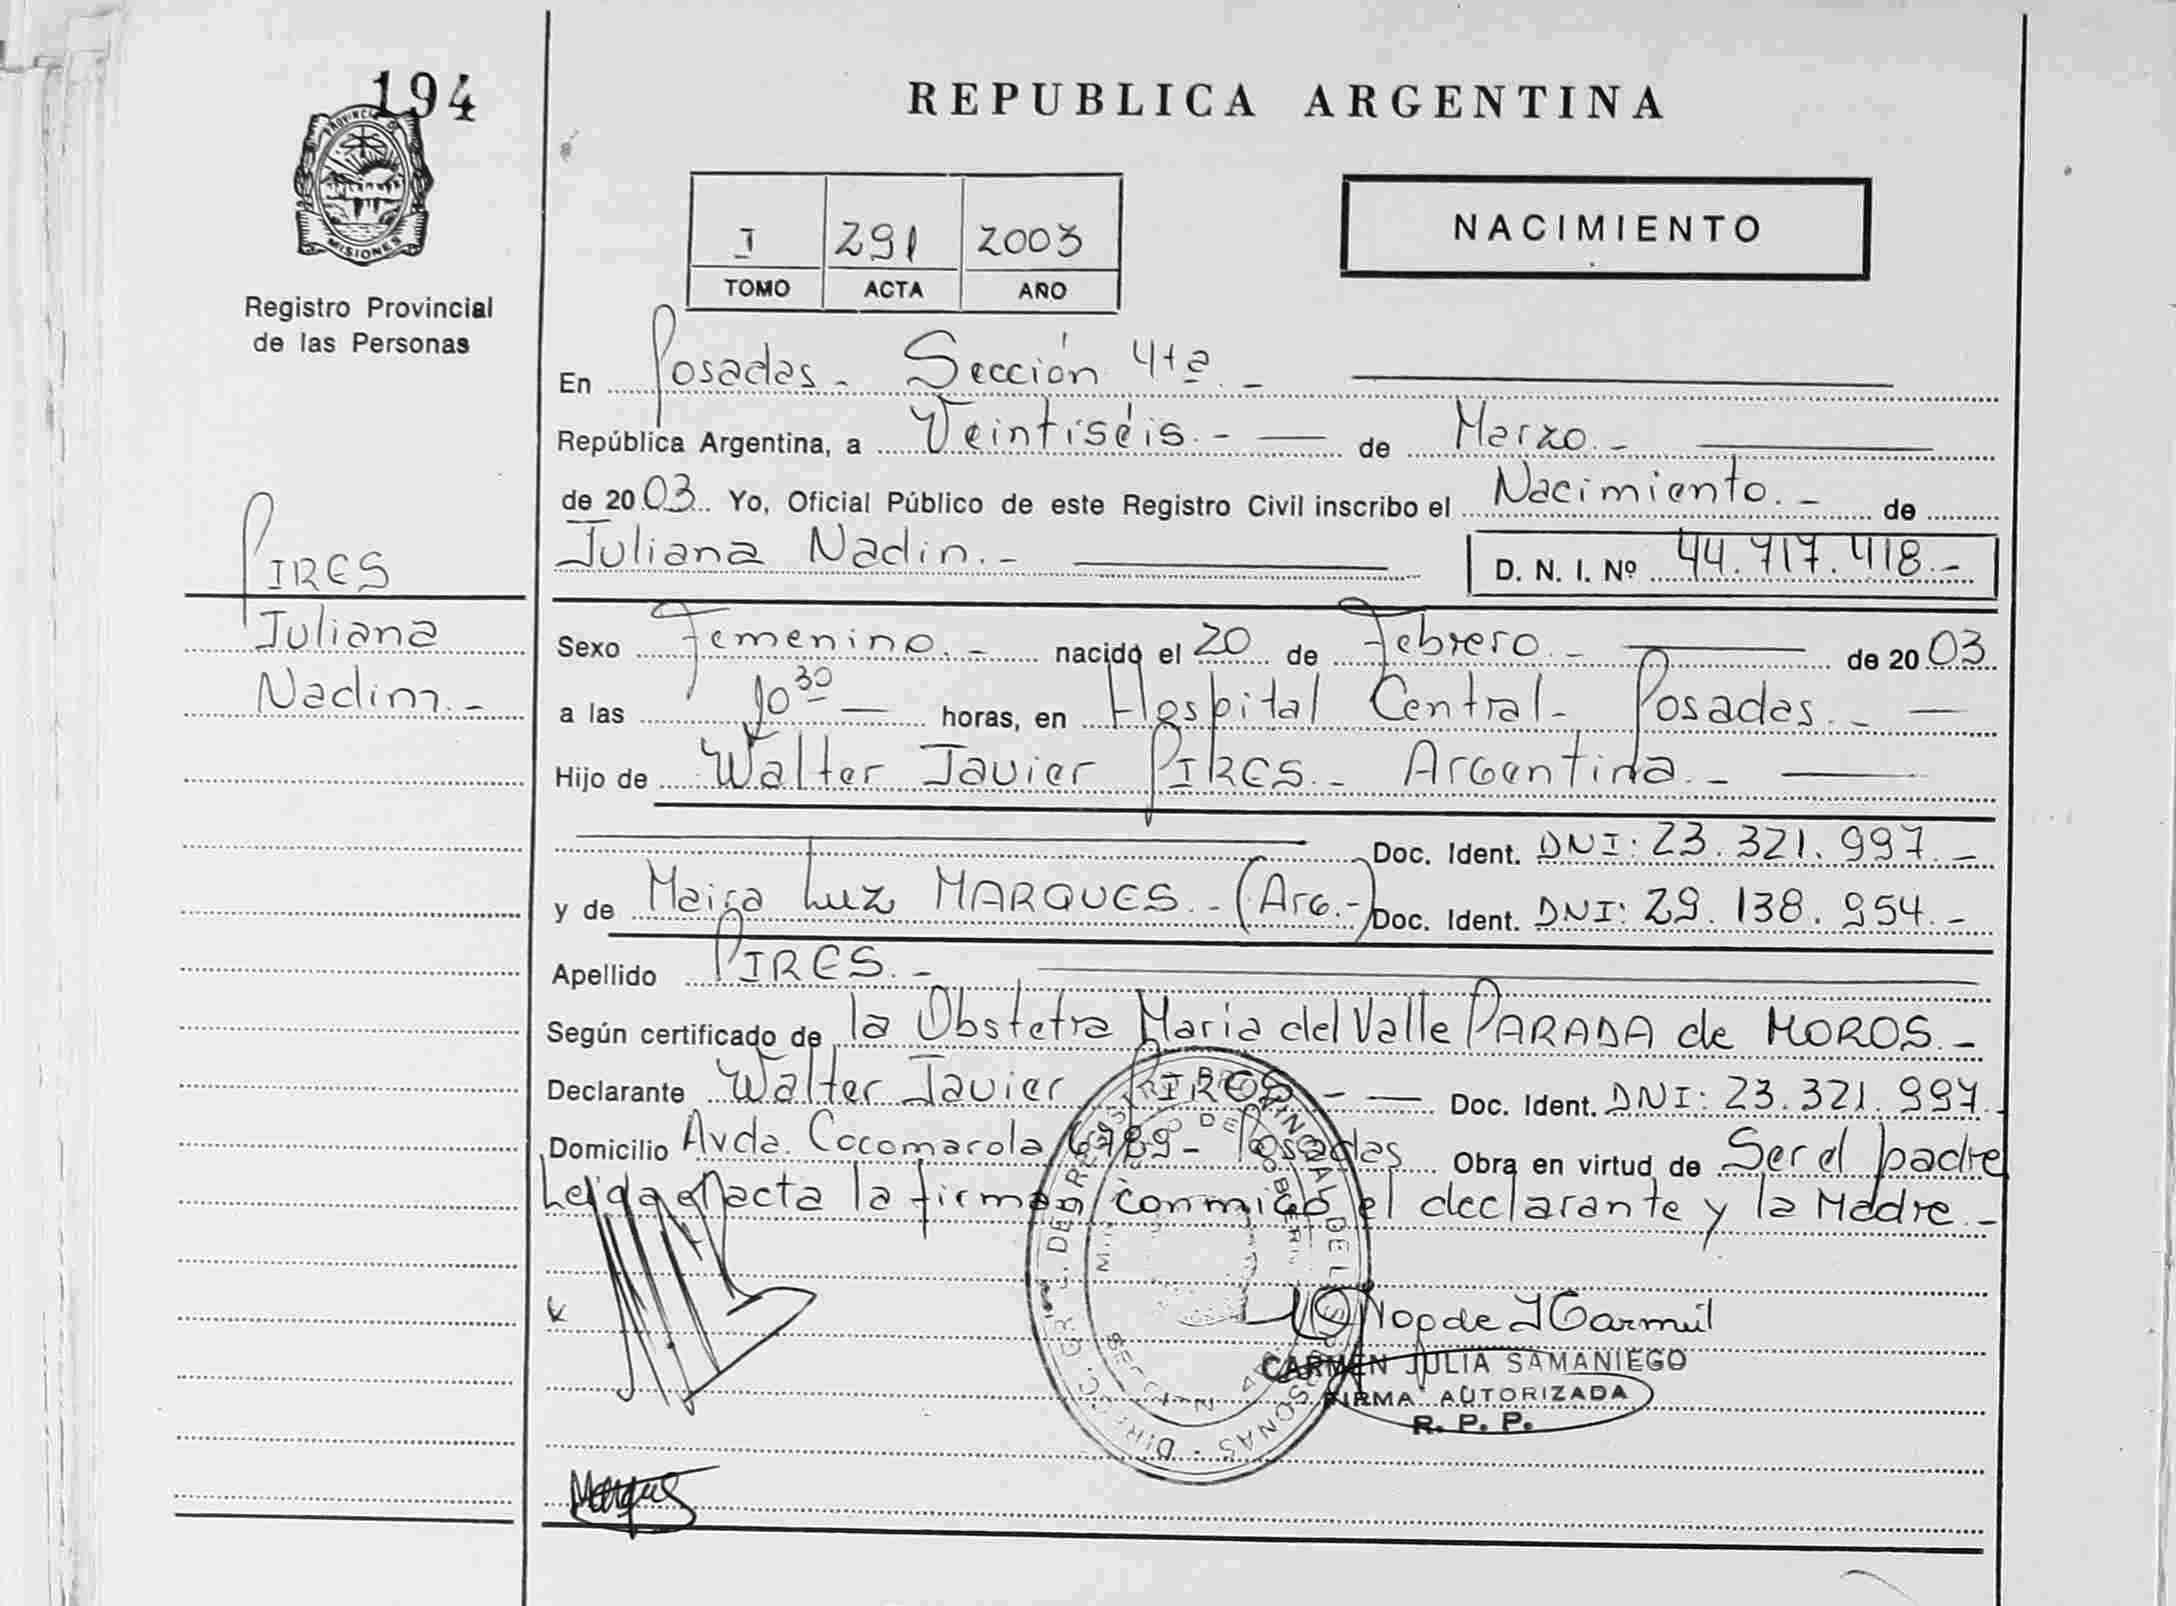 194
PROVINCIA DE
MISIONES
Registro Provincial
de las Personas
PIRES
Juliana
Nadin.-
REPUBLICA ARGENTINA
I 291 2003
TOMO ACTA AÑO
NACIMIENTO
En Posadas- Sección 4ta.-
República Argentina, a Veintiséis.- de Marzo.-
de 2003. Yo, Oficial Público de este Registro Civil inscribo el Nacimiento.- de
Juliana Nadin.- D. N. I. Nº 44.717.418.-
Sexo Femenino.- nacido el 20 de Febrero.- de 2003
a las 10 30 horas, en Hospital Central- Posadas.-
Hijo de Walter Javier PIRES.- Argentina.-
Doc. Ident. DNI: 23.321.997.-
y de Maira Luz MARQUES.-(Arg.-) Doc. Ident. DNI: 29.138.954.-
Apellido PIRES.-
Según certificado de la Obstetra Maria del Valle PARADA de MOROS.-
Declarante Walter Javier PIRES - Doc. Ident. DNI: 23.321.997.
Domicilio Avda. Cocomarola 6789- Posadas Obra en virtud de Ser el padre
Leida el acta la firman conmigo el declarante y la Madre.-
CARMEN JULIA SAMANIEGO
FIRMA AUTORIZADA
R. P. P.
Marques